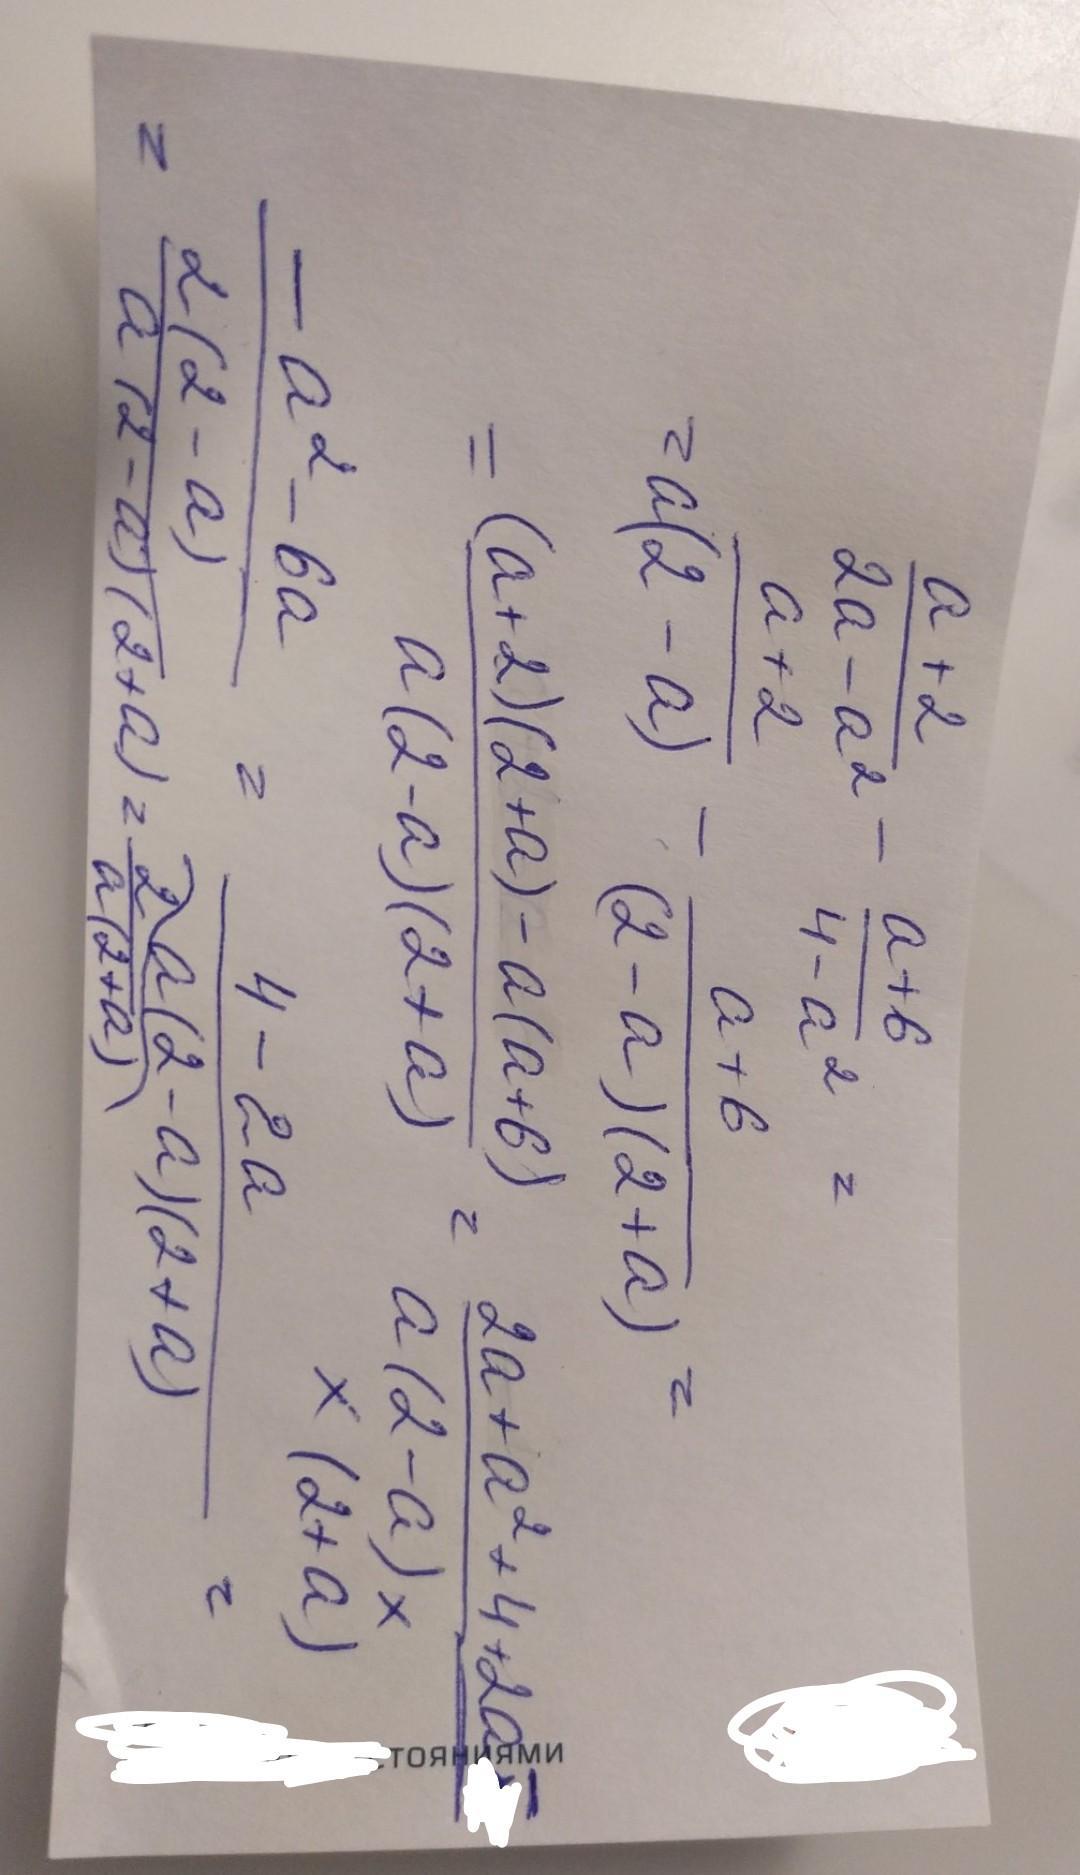 a+2 / 2a-a² - a+6 / 4-a² =
= a+2 / a(2-a) - a+6 / (2-a)(2+a) =
= (a+2)(2+a)-a(a+6) / a(2-a)(2+a) = 2a+a²+4+2a- / a(2-a)×
×(2+a)
-a²-6a = 4-2a / a(2-a)(2+a) =
= 2(2-a) / a(2-a)(2+a) = 2 / a(2+a)